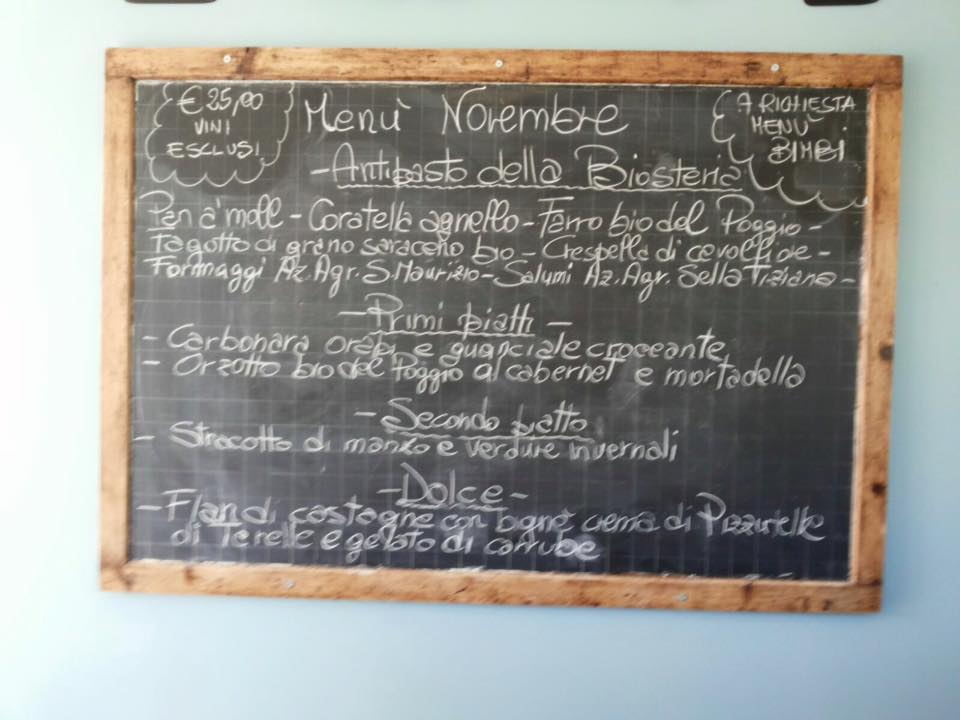 € 25,00
VINI
ESCLUSI
Menù Novembre
A RICHIESTA
MENU'
BIMBI
- Antipasto della Biosteria
Pan a' moll - Coratella agnello - Farro bio del Poggio -
Fagotto di grano saraceno bio - Crespella di cavolfiore -
Formaggi Az. Agr. S. Maurizio - Salumi Az. Agr. Sella Tiziana -
- Primi piatti -
- Carbonara orapi e guanciale croccante
- Orzotto bio del Poggio al cabernet e mortadella
- Secondo piatto
- Stracotto di manzo e verdure invernali
- Dolce -
- Flan di castagne con bignè crema di
di Terelle e gelato di carrube